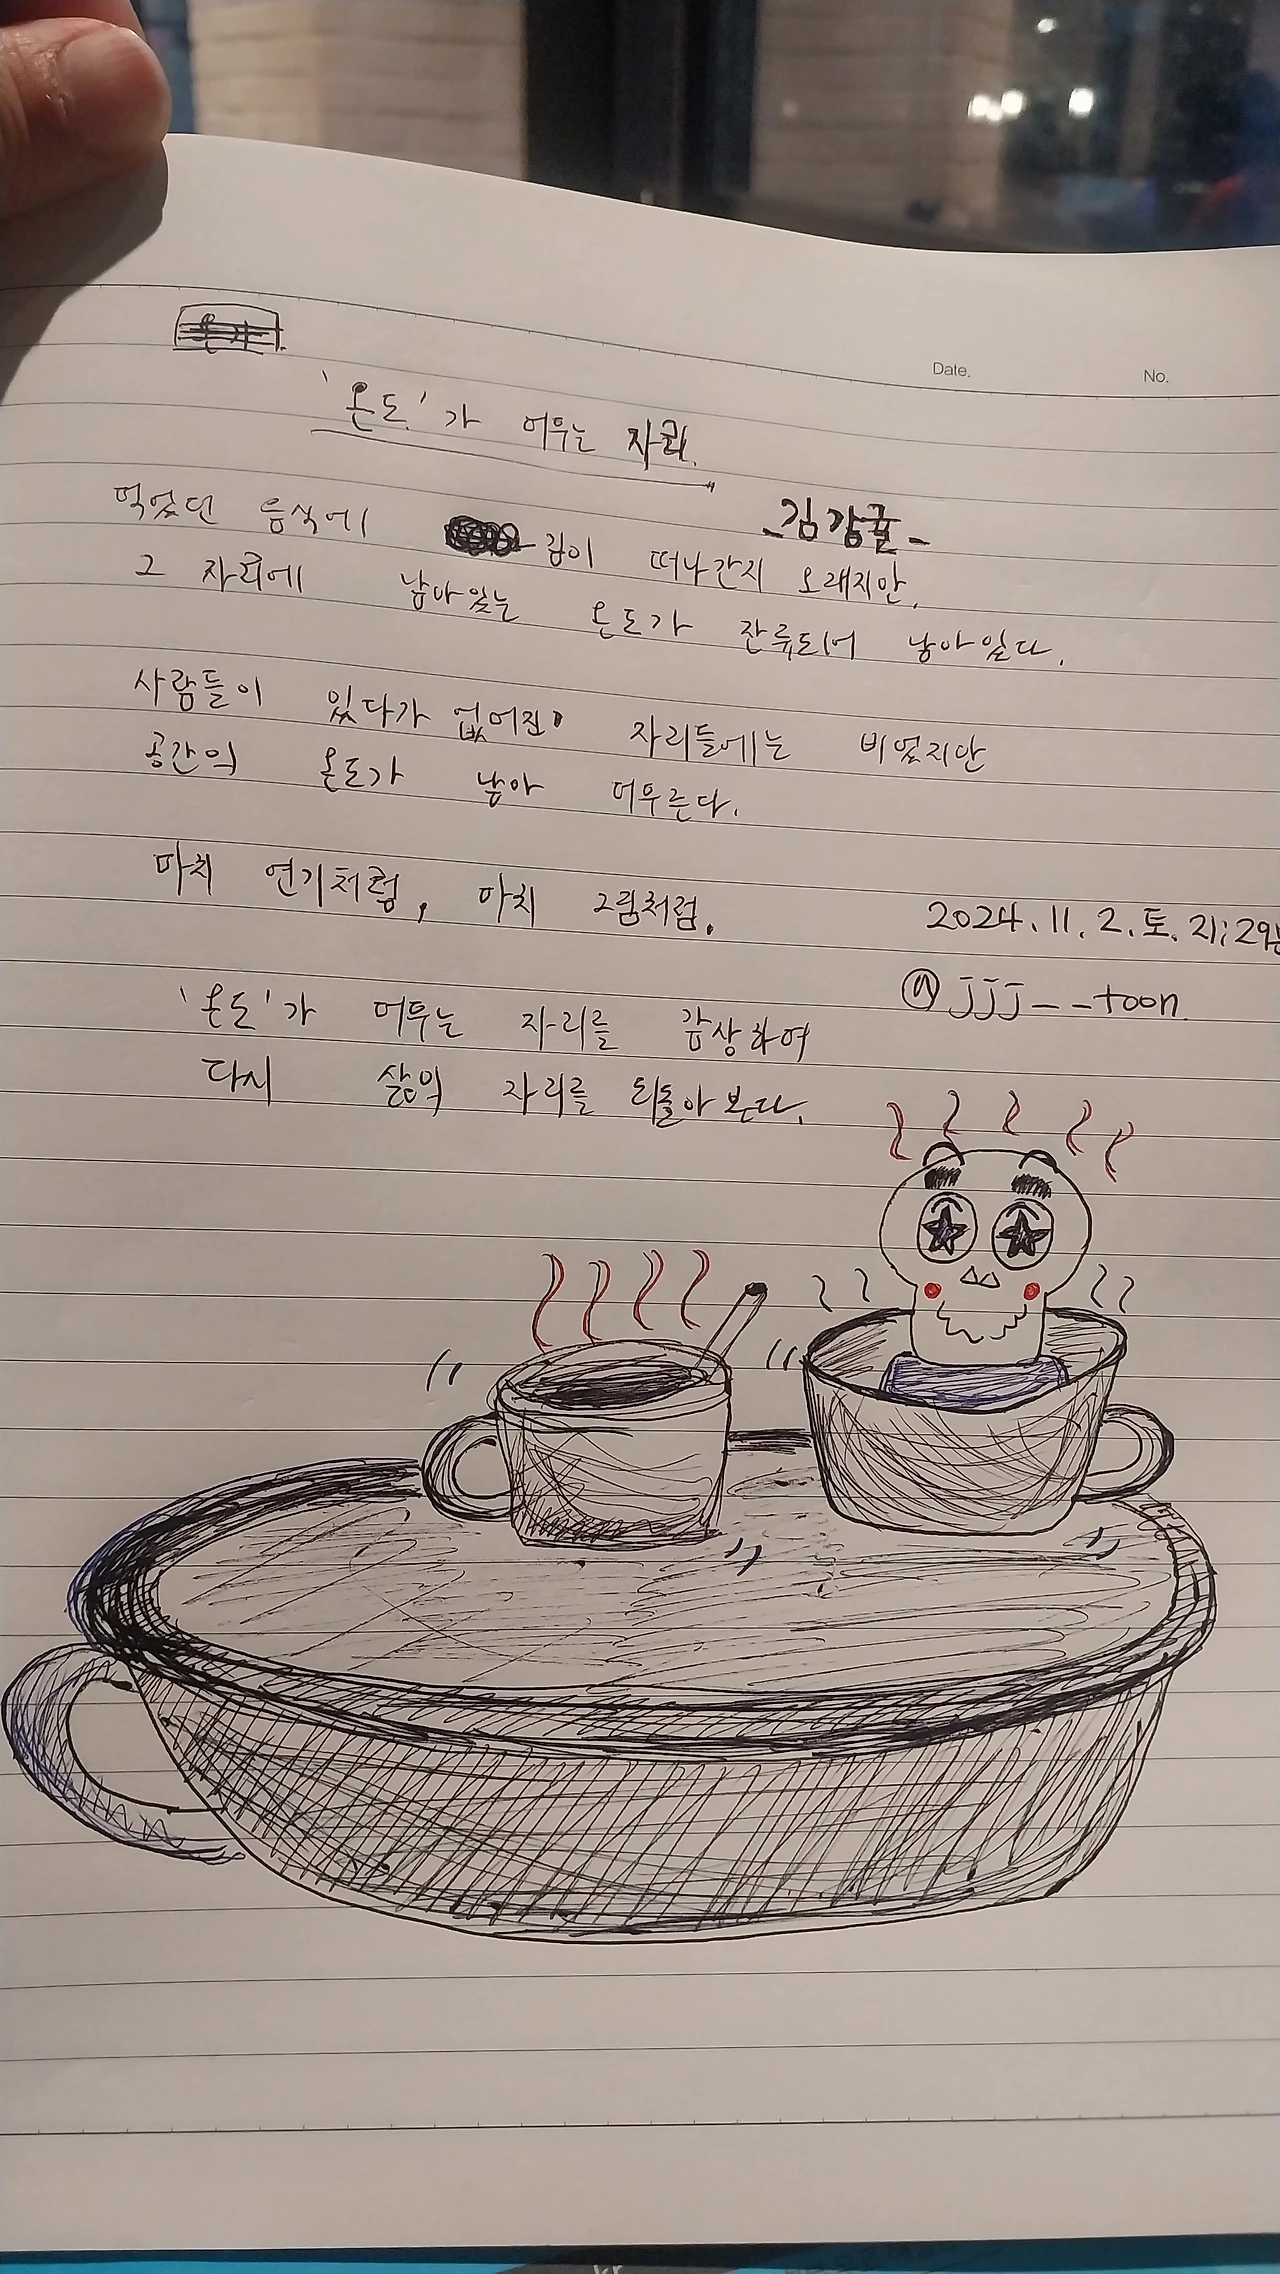 Date. No.
'온도'가 머무는 자리.
-김감귤-
먹었던 음식에 김이 떠나간지 오래지만,
그 자리에 남아있는 온도가 잔류되어 남아있다.
사람들이 있다가 없어진 자리들에는 비었지만
공간의 온도가 남아 머무른다.
마치 연기처럼, 마치 그림처럼.
2024.11.2.토.21:29분
@jjj--toon
'온도'가 머무는 자리를 감상하여
다시 삶의 자리를 되돌아본다.